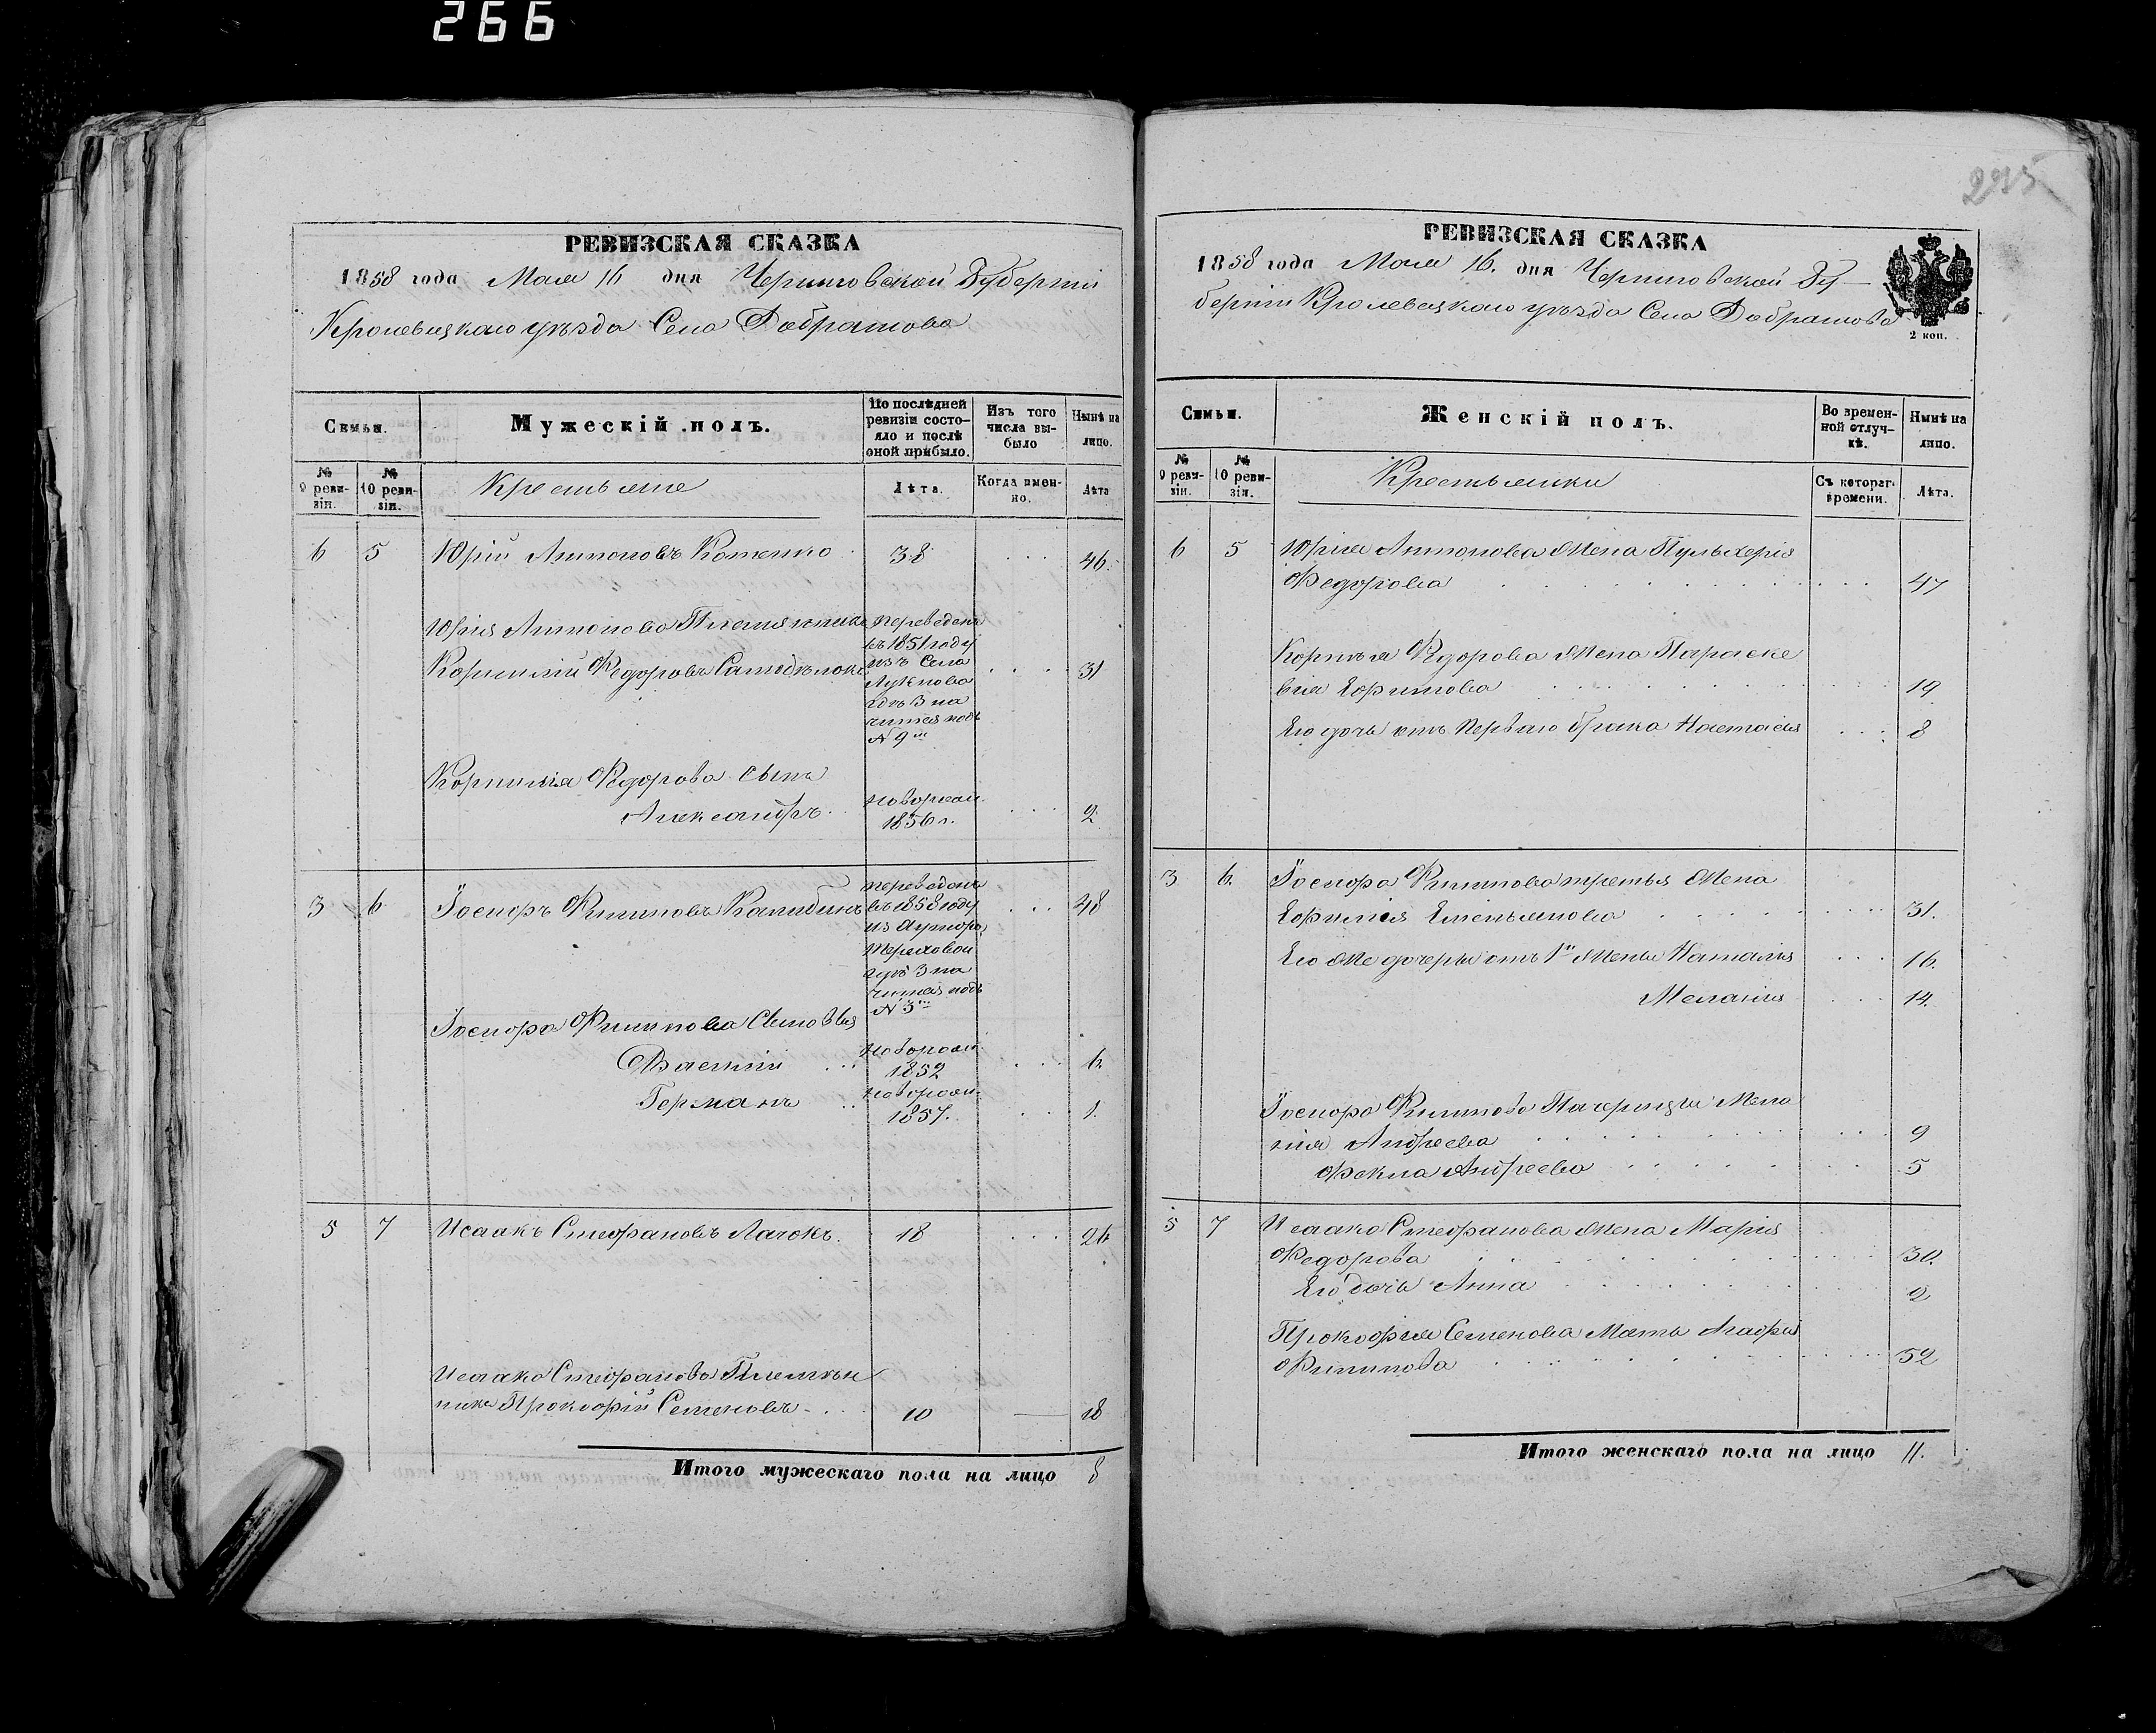 266
РЕВИЗСКАЯ СКАЗКА
1858 года Мая 16 дня Черниговской Губерніи
Кролевецкаго уѣзда Села Добратова
Семьи.
Мужескій полъ.
По послѣдней ревизіи состояло и послѣ оной прибыло.
Изъ того числа выбыло
Нынѣ на лицо.
№ 9 ревизіи.
№ 10 ревизіи.
Крестьяне
Лѣта.
Когда именно.
Лѣта
6 5 Юрій Антоновъ Котенко 38 46.
Юрія Антонова Племянникъ
Корнилій Федоровъ
переведенъ
въ 1851 году
изъ Села
гдѣ Зна
чится подъ
№ 9
31
Корнилія Федорова сынъ
Александръ
новорожд.
1856 г.
2
3 6 Іосифъ Филиповъ
переведенъ
въ 1858 году
из хутора
гдѣ Зна
чится подъ
№ 3
48
Іосифа Филипова Сыновья
Василій
новорожд.
1852
6.
Германъ
новорожд.
1857.
1.
5 7 Исаакъ Стефановъ Лачокъ 18 26
Исаака Стефанова Племян
никъ Прокофій Семеновъ 10 — 18
Итого мужескаго пола на лицо 8
РЕВИЗСКАЯ СКАЗКА
1858 года Мая 16. дня Черниговской Гу-
берніи Кролевецкаго уѣзда Села Добратова
2 коп.
Семьи.
Женскій полъ.
Во временной отлучкѣ.
Нынѣ на лицо.
№ 9 ревизіи.
№ 10 ревизіи.
Крестьянки
Съ котораг. времени.
Лѣта.
6 5 Юрія Антонова Жена Пульхерія
Федорова 47
Корнилія Федорова Жена Параске
вія Ефимова 19
Его дочь отъ перваго брака Настасія 8
3 6. Іосифа Филипова третья Жена
Ефимія Емельянова 31.
Его Же дочери отъ 1й Жены Наталія 16.
Меланія 14.
Іосифа Филипова Падчерицы Мела
нія Андреева 9
Фекла Андреева 5
5 7 Исаака Стефанова Жена Марія
Федорова 30.
Его дочь Анна 2
Прокофія Семенова Мать Агафія
Филипова 52
Итого женскаго пола на лицо 11.